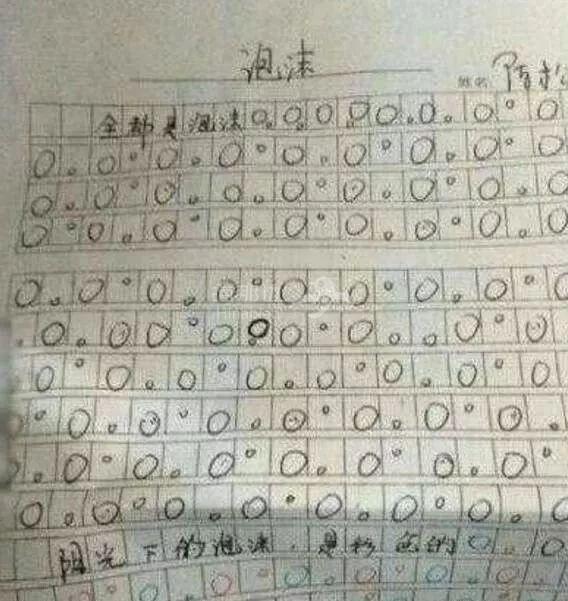 泡沫
姓名
全部是泡沫
阳光下的泡沫，是彩色的